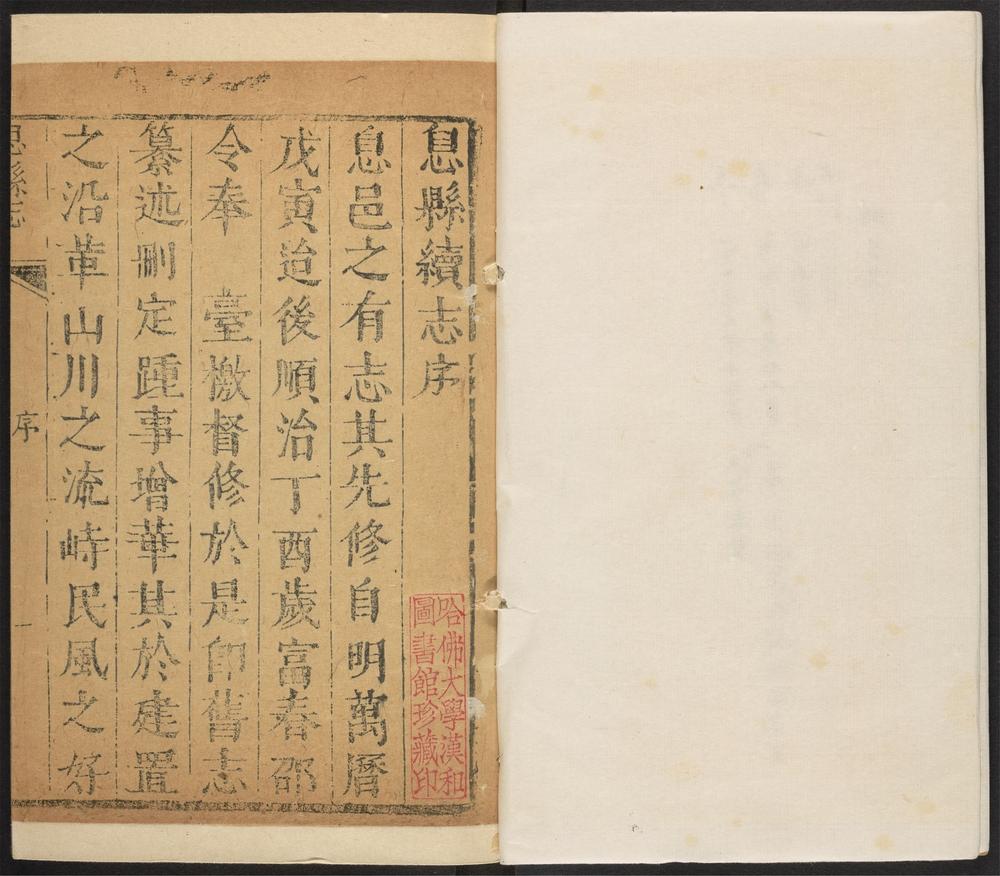 息縣續志序
息邑之有志其先修自明萬曆
戊寅迨後順治丁酉歲富春邵
令奉　臺檄督修於是卽舊志
纂述刪定踵事增華其於建置
之沿革山川之流峙民風之好
息縣志
序
一
哈佛大學漢和
圖書館珍藏印